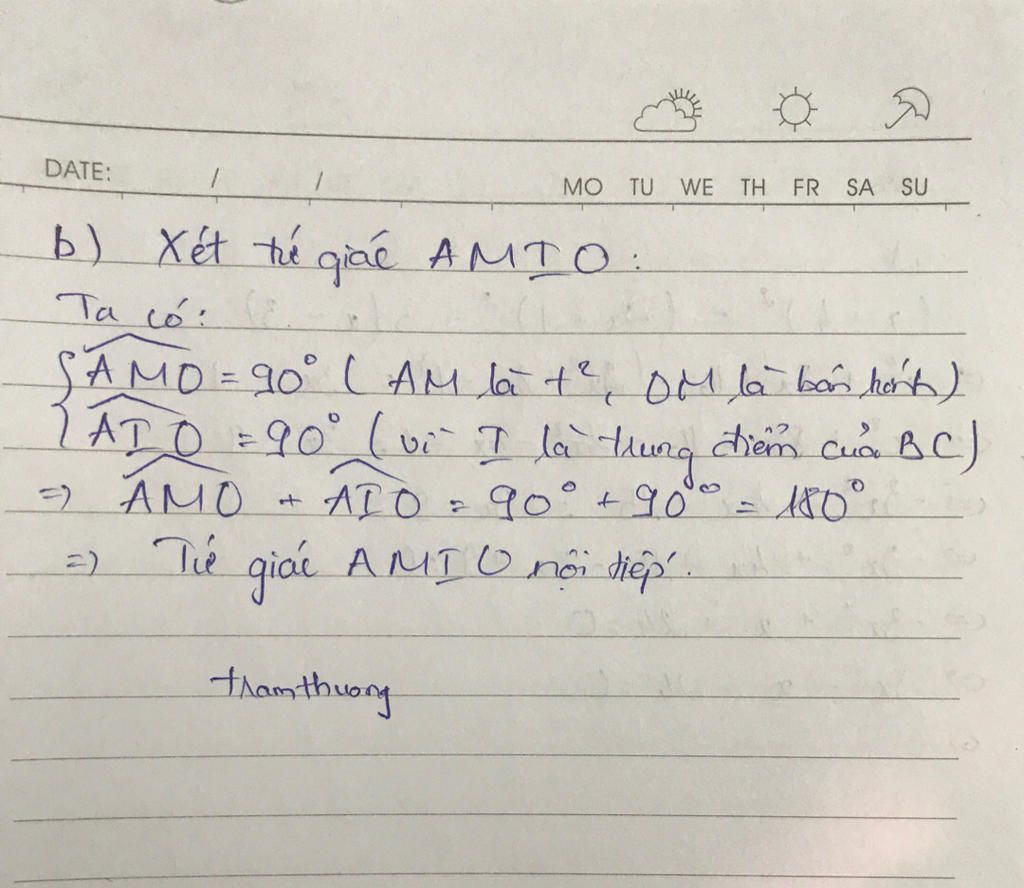 DATE: / /
MO TU WE TH FR SA SU
b) Xét tứ giác AMIO:
Ta có:
{ \widehat{AMO} = 90° ( AM là t², OM là bán kính)
{ \widehat{AIO} = 90° ( vì I là trung điểm của BC)
=> \widehat{AMO} + \widehat{AIO} = 90° + 90°° = 180°
=> Tứ giác AMIO nội tiếp.
tramthuong